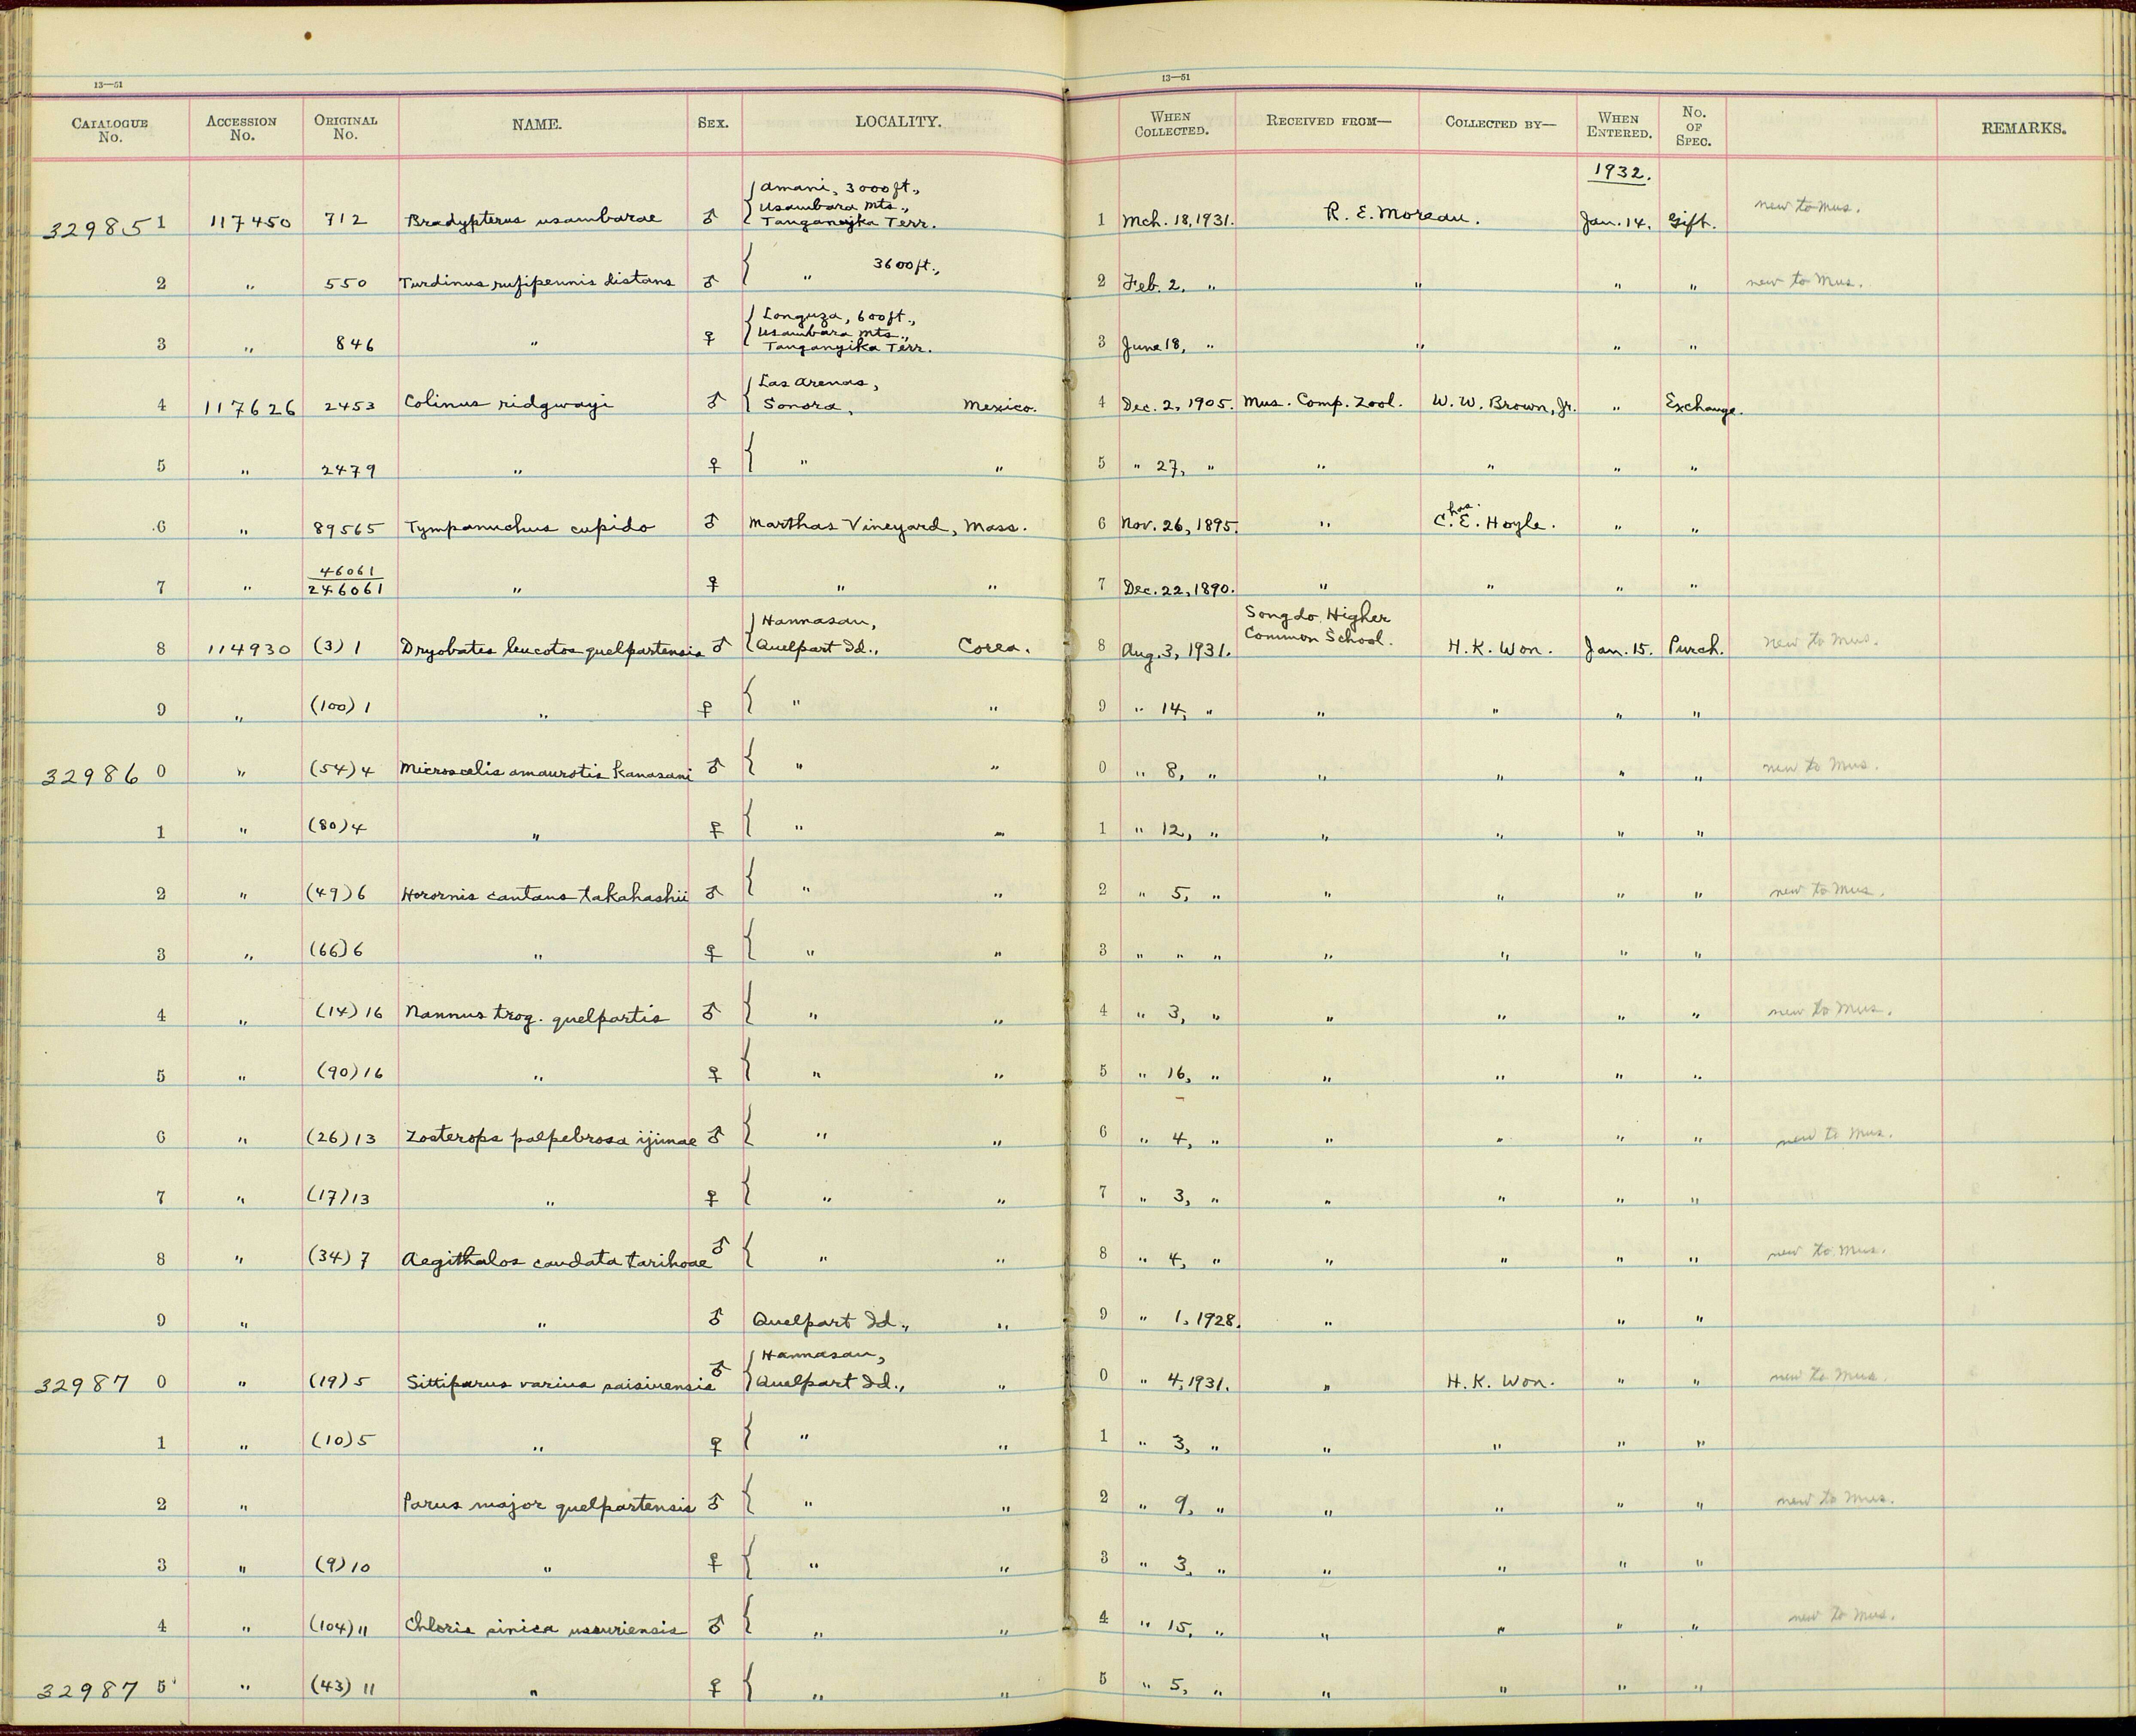 13—51
13—51
CATALOGUE No. ACCESSION No. ORIGINAL No. NAME. SEX. LOCALITY. WHEN COLLECTED. RECEIVED FROM— COLLECTED BY— WHEN ENTERED. No. OF SPEC. REMARKS.
1932.
329851 117450 712 Bradypterus usambarae ♂ { Amani, 3000 ft., Usambara Mts., Tanganyika Terr. 1 Mch. 18, 1931. R. E. Moreau. Jan. 14. Gift. new to Mus.
2 " 550 Turdinus rufipennis distans ♂ { " 3600 ft., 2 Feb. 2, " " " " new to Mus.
3 " 846 " ♀ { Longuza, 600 ft., Usambara Mts., Tanganyika Terr. 3 June 18, " " " "
4 117626 2453 Colinus ridgwayi ♂ { Las Arenas, Sonora, Mexico. 4 Dec. 2, 1905. Mus. Comp. Zool. W. W. Brown, Jr. " Exchange.
5 " 2479 " ♀ { " " 5 " 27, " " " " "
6 " 89565 Tympanuchus cupido ♂ Marthas Vineyard, Mass. 6 Nov. 26, 1895. " Chas. E. Hoyle. " "
7 " 46061 / 246061 " ♀ " " 7 Dec. 22, 1890. " " " "
8 114930 (3) 1 Dryobates leucotos quelpartensis ♂ { Hannasan, Quelpart Id., Corea. 8 Aug. 3, 1931. Songdo Higher Common School. H. K. Won. Jan. 15. Purch. new to Mus.
9 " (100) 1 " ♀ { " " 9 " 14, " " " " "
329860 " (54) 4 Microscelis amaurotis kanasani ♂ { " " 0 " 8, " " " " " new to Mus.
1 " (80) 4 " ♀ { " " 1 " 12, " " " " "
2 " (49) 6 Horornis cantans takahashii ♂ { " " 2 " 5, " " " " " new to Mus.
3 " (66) 6 " ♀ { " " 3 " " " " " " "
4 " (14) 16 Nannus trog. quelpartis ♂ { " " 4 " 3, " " " " " new to Mus.
5 " (90) 16 " ♀ { " " 5 " 16, " " " " "
6 " (26) 13 Zosterops palpebrosa ijimae ♂ { " " 6 " 4, " " " " " new to Mus.
7 " (17) 13 " ♀ { " " 7 " 3, " " " " "
8 " (34) 7 Aegithalos caudata tarihoae ♂ { " " 8 " 4, " " " " " new to Mus.
9 " " ♂ Quelpart Id., " 9 " 1, 1928. " " "
329870 " (19) 5 Sittiparus varius saisiuensis ♂ { Hannasan, Quelpart Id., " 0 " 4, 1931. " H. K. Won. " " new to Mus.
1 " (10) 5 " ♀ { " " 1 " 3, " " " " "
2 " Parus major quelpartensis ♂ { " " 2 " 9, " " " " " new to Mus.
3 " (9) 10 " ♀ { " " 3 " 3, " " " " "
4 " (104) 11 Chloris sinica ussuriensis ♂ { " " 4 " 15, " " " " " new to Mus.
329875 " (43) 11 " ♀ { " " 5 " 5, " " " " "